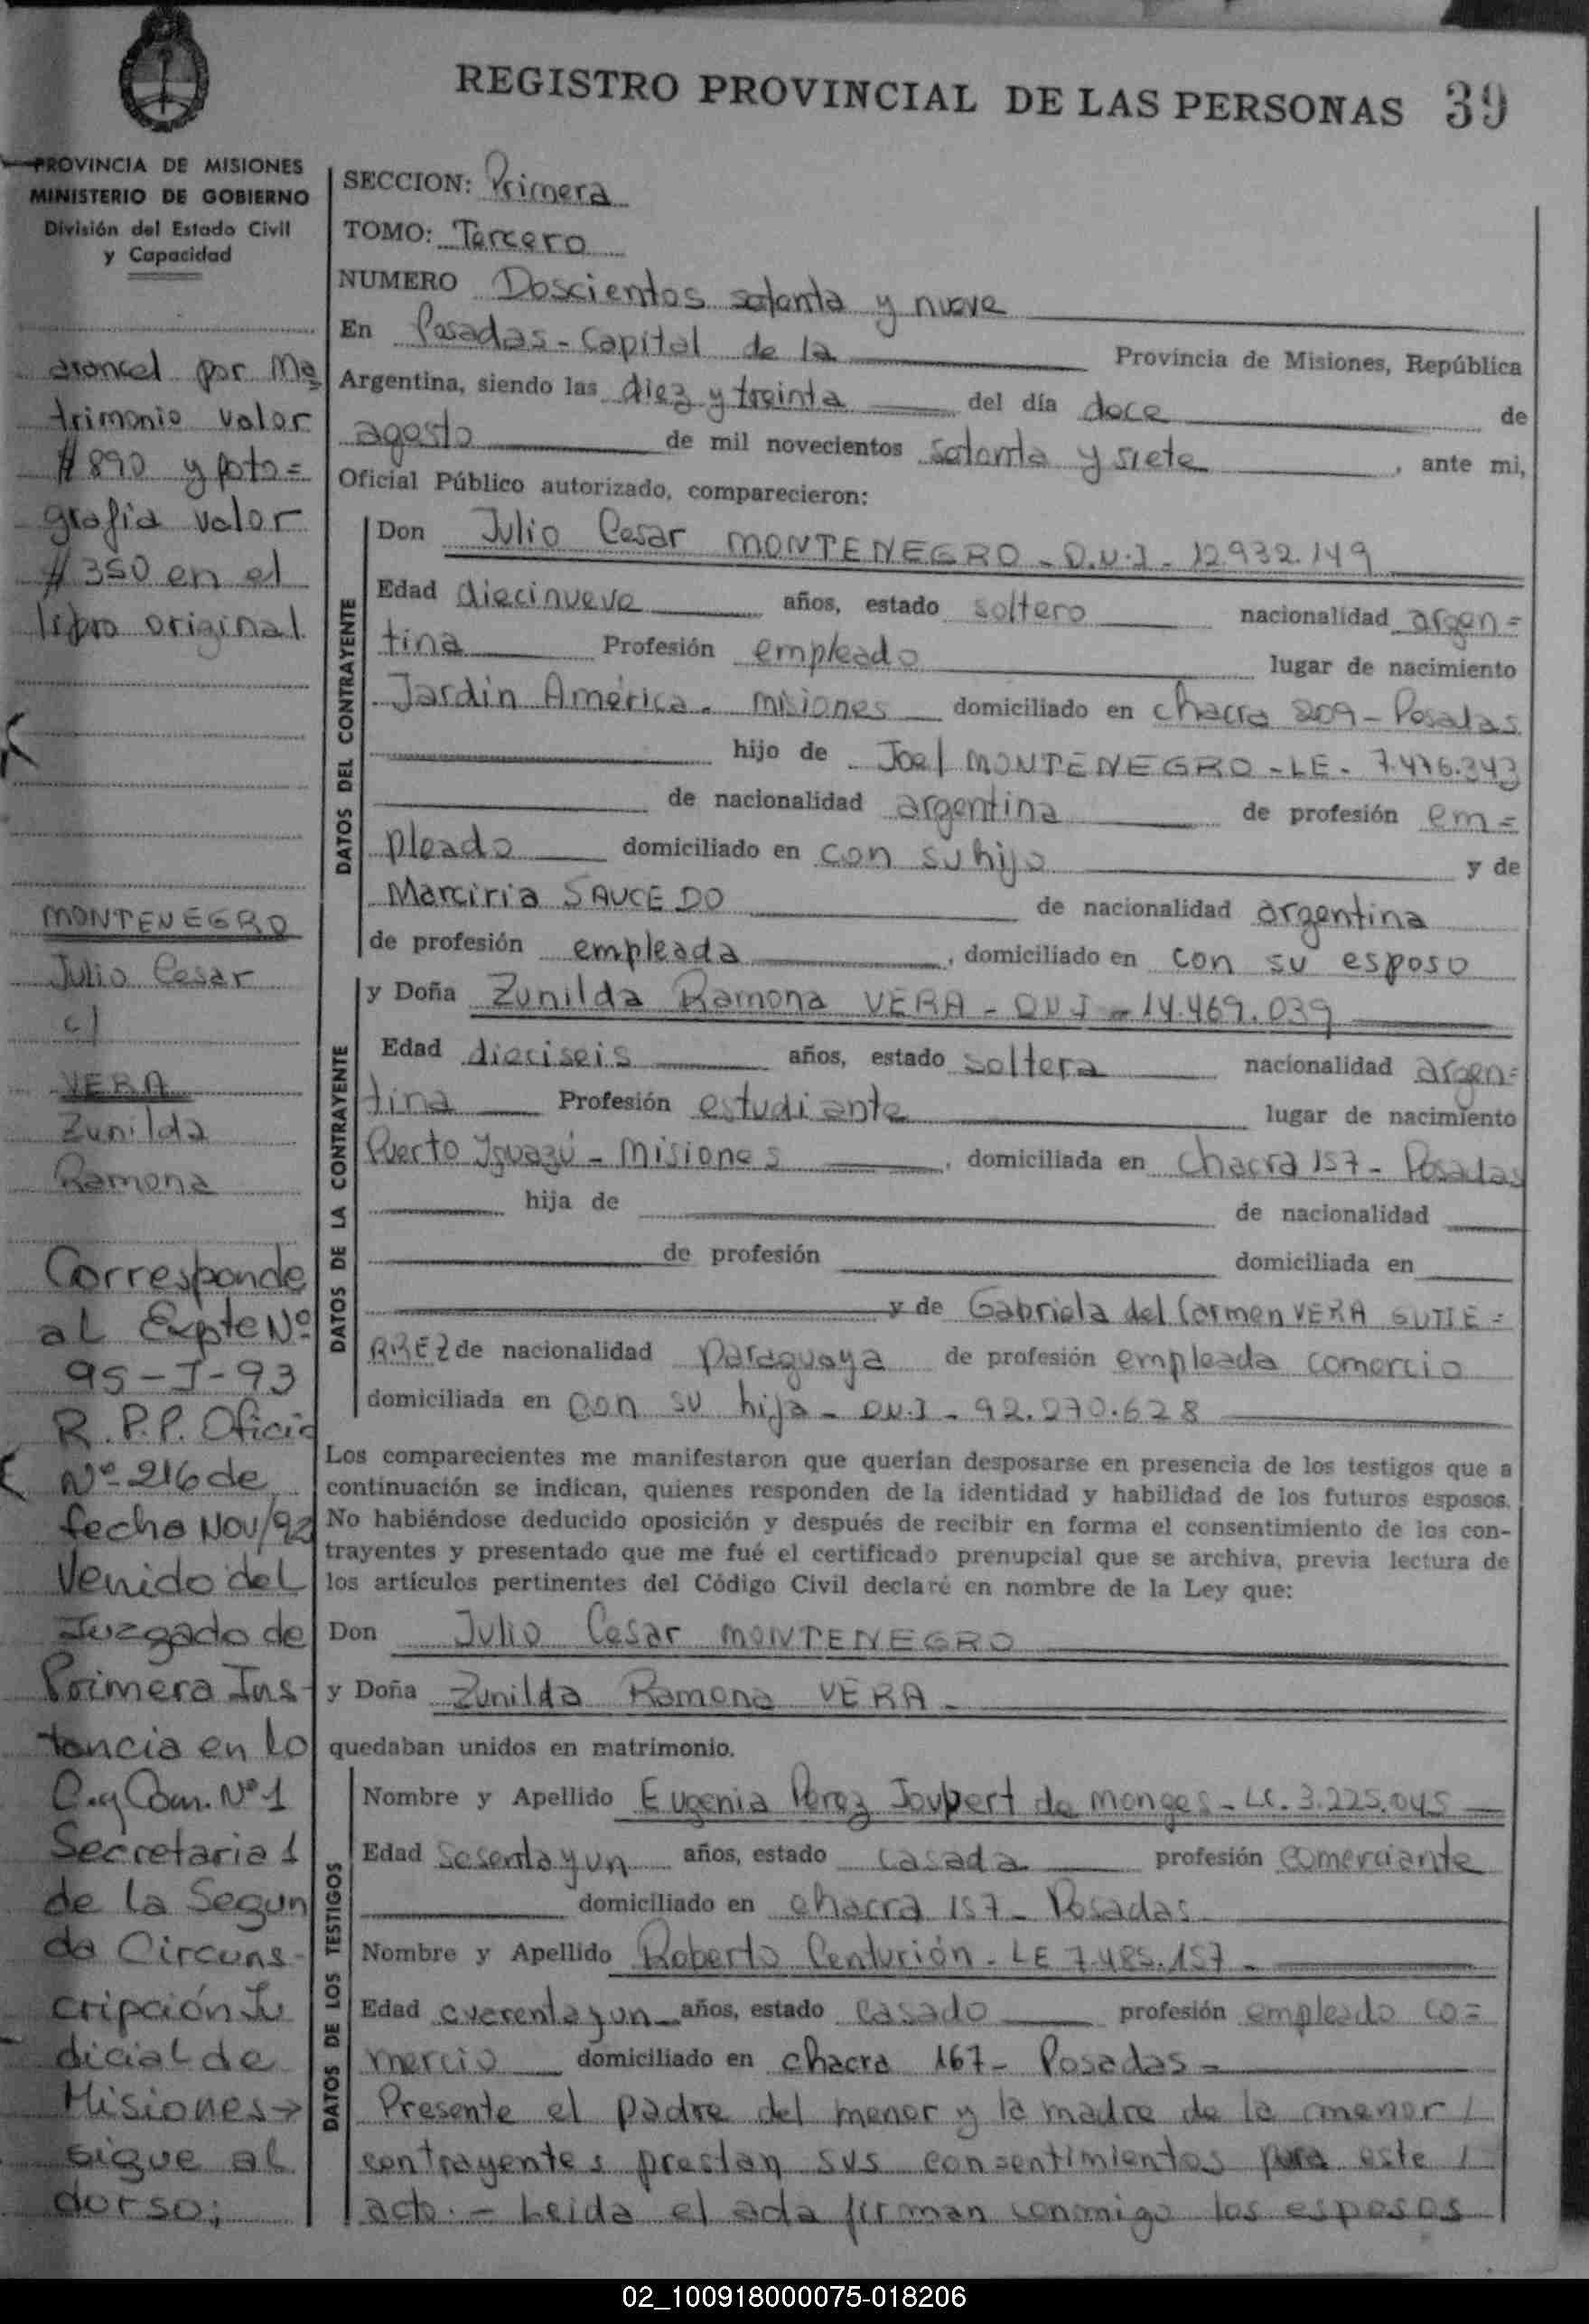 REGISTRO PROVINCIAL DE LAS PERSONAS 39
PROVINCIA DE MISIONES
MINISTERIO DE GOBIERNO
División del Estado Civil
y Capacidad
arancel por Ma=
trimonio valor
$ 890 y foto=
grafia valor
$ 350 en el
libro original
MONTENEGRO
Julio Cesar
c/
VERA
Zunilda
Ramona
Corresponde
al Expte Nº
95-I-93
R.P.P. Oficio
Nº 216 de
fecha Nov/92
Venido del
Juzgado de
Primera Ins-
tancia en lo
C. y Com. Nº 1
Secretaria 1
de la Segun
da Circuns-
cripción Ju
dicial de
Misiones→
sigue al
dorso;
SECCION: Primera
TOMO: Tercero
NUMERO Doscientos setenta y nueve
En Posadas - Capital de la Provincia de Misiones, República
Argentina, siendo las diez y treinta del día doce de
agosto de mil novecientos setenta y siete, ante mi,
Oficial Público autorizado, comparecieron:
DATOS DEL CONTRAYENTE
Don Julio Cesar MONTENEGRO - D.N.I - 12.932.149
Edad diecinueve años, estado soltero nacionalidad argen=
tina Profesión empleado lugar de nacimiento
Jardin América - misiones domiciliado en chacra 209 - Posadas
hijo de Joel MONTENEGRO - LE - 7.476.343
de nacionalidad argentina de profesión em=
pleado domiciliado en con su hijo y de
Marciria SAUCEDO de nacionalidad argentina
de profesión empleada, domiciliado en con su esposo
DATOS DE LA CONTRAYENTE
y Doña Zunilda Ramona VERA - DNI - 14.469.039
Edad dieciseis años, estado soltera nacionalidad argen=
tina Profesión estudiante lugar de nacimiento
Puerto Iguazú - Misiones, domiciliada en chacra 157 - Posadas
hija de de nacionalidad
de profesión domiciliada en
y de Gabriela del Carmen VERA GUTIE=
RREZ de nacionalidad paraguaya de profesión empleada comercio
domiciliada en con su hija - DN.I - 92.270.628
Los comparecientes me manifestaron que querían desposarse en presencia de los testigos que a
continuación se indican, quienes responden de la identidad y habilidad de los futuros esposos.
No habiéndose deducido oposición y después de recibir en forma el consentimiento de los con-
trayentes y presentado que me fué el certificado prenupcial que se archiva, previa lectura de
los artículos pertinentes del Código Civil declaré en nombre de la Ley que:
Don Julio Cesar MONTENEGRO
y Doña Zunilda Ramona VERA -
quedaban unidos en matrimonio.
DATOS DE LOS TESTIGOS
Nombre y Apellido Eugenia Perez Joubert de Monges - LC. 3.225.045
Edad sesenta y un años, estado casada profesión comerciante
domiciliado en chacra 157 - Posadas
Nombre y Apellido Roberto Centurión - LE 7.485.157 -
Edad cuarenta y un años, estado casado profesión empleado co=
mercio domiciliado en chacra 167 - Posadas -
Presente el padre del menor y la madre de la menor /
contrayentes prestan sus consentimientos para este /
acto. - Leida el acta firman conmigo los esposos
02_100918000075-018206